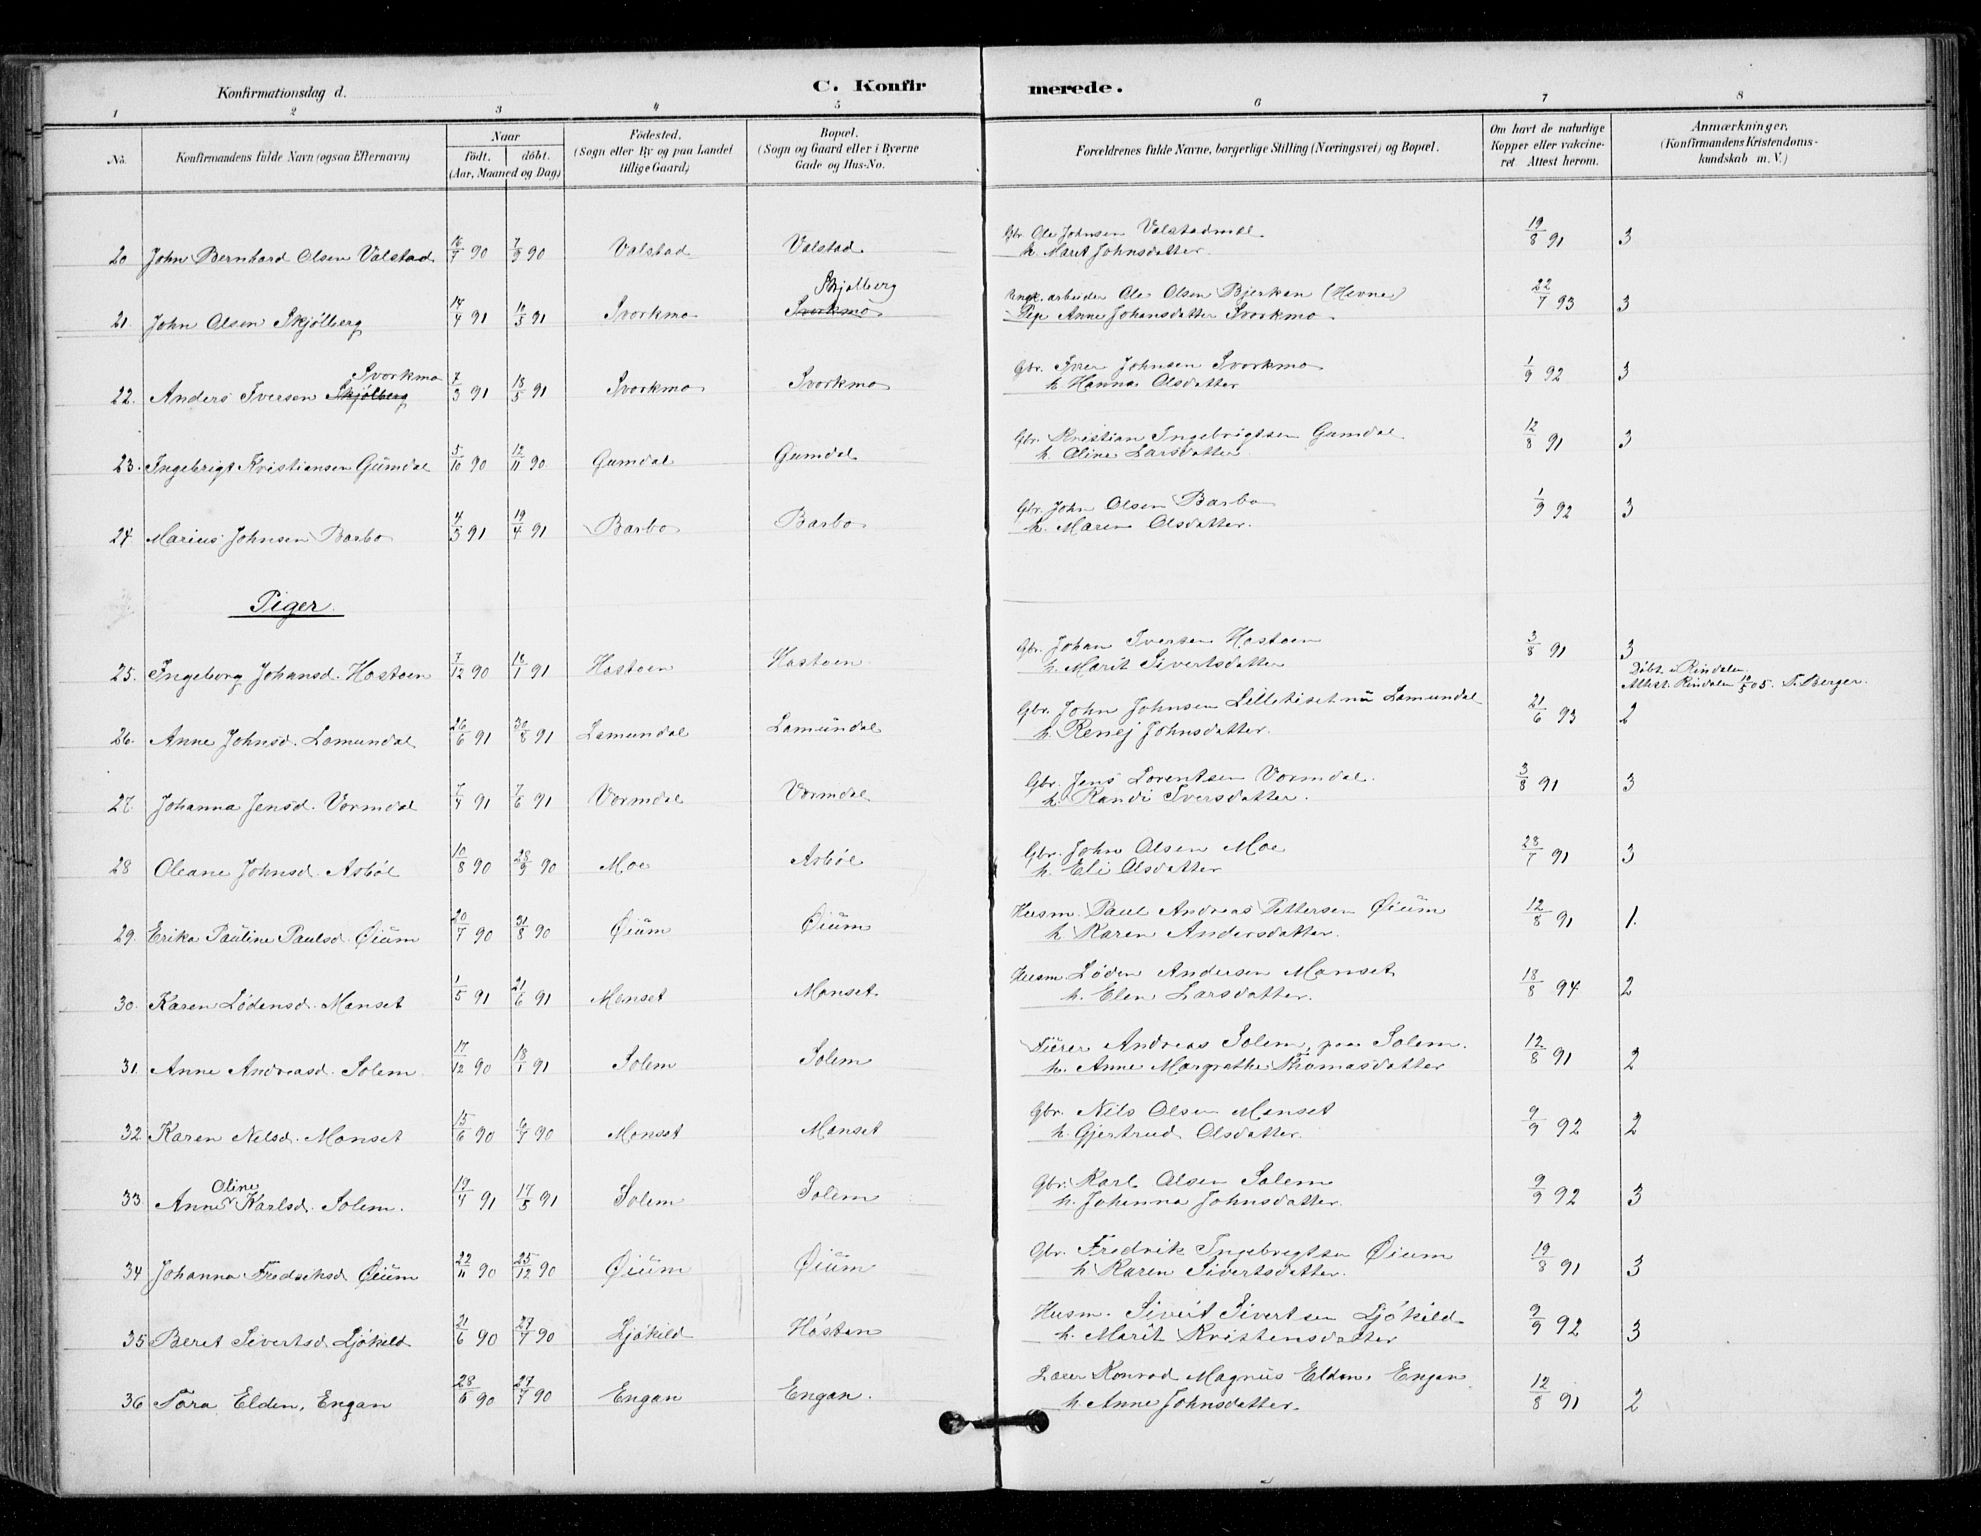 Konfirmationsdag d. C. Konfirmerede.
1 2 3 4 5 6 7 8
No. Konfirmandens fulde Navn (ogsaa Efternavn) Naar født. døbt. (Aar, Maaned og Dag) Fødested. (Sogn eller By og paa Landet tillige Gaard) Bopæl. (Sogn og Gaard eller i Byerne Gade og Hus-No. Forældrenes fulde Navne, borgerlige Stilling (Næringsvei) og Bopæl. Om havt de naturlige Kopper eller vakcineret Attest herom. Anmærkninger. (Konfirmandens Kristendomskundskab m. V.)
20 John Bernhard Olsen Valstad 16/7 90 7/9 90 Valstad Valstad Gbr. Ole Johnsen Valstadmoe 19/8 91 3
h. Marit Johnsdatter.
21. John Olsen Skjølberg 17/4 91 10/5 91 Svorkmo Skjølberg Svorkmo arbeider Ole Olsen Bjerkan (Hevne) 22/7 93 3
Pige Anne Johansdatter Svorkmo
22. Anders Iversen Skjølberg Svorkmo 7/3 91 18/5 91 Svorkmo Svorkmo Gbr. Iver Johnsen Svorkmo 1/9 92 3
h Hanna Olsdatter
23. Ingebrigt Kristiansen Gumdal 5/10 90 12/11 90 Gumdal Gumdal Gbr. Kristian Ingebrigtsen Gumdal 12/8 91 3
h. Oline Larsdatter
24 Marius Johnsen Barbo 4/3 91 19/4 91 Barbo Barbo Gbr. John Olsen Barbo 1/9 92 3
h. Maren Olsdatter.
Piger.
25. Ingeborg Johansd. Hostoen 7/12 90 16/1 91 Hostoen Hostoen Gbr. Johan Iversen Hostoen 3/8 91 3
h. Marit Sivertsdatter
Døbt i Rindalen.
Attest. Rindalen 10/5 05. T. Berger.
26. Anne Johnsd. Lomundal 26/6 91 30/8 91 Lomundal Lomundal Gbr. John Johnsen Lilletiset nu Lomundal 21/6 93 2
h. Reniej Johnsdatter.
27. Johanna Jensd. Vormdal 7/4 91 7/6 91 Vormdal Vormdal Gbr. Jens Lorentsen Vormdal. 3/8 91 3
h. Randi Iversdatter.
28 Oleane Johnsd. Asbøl 10/8 90 28/9 90 Moe Asbøl Gbr. John Olsen Moe 28/7 91 3
h. Eli Olsdatter
29. Erika Pauline Paulsd. Øium 20/7 90 31/8 90 Øium Øium Husm. Paul Andreas Pettersen Øium 12/8 91 1.
h Karen Andersdatter.
30. Karen Lødensd. Monset 1/5 91 21/6 91 Monset Monset Husm. Løden Andersen Monset 18/8 94 2
h. Elen Larsdatter.
31. Anne Andreasd. Solem. 17/12 90 18/1 91 Solem Solem Andreas Solem, paa Solem. 12/8 91 2
h. Anne Margrethe Thomasdatter
32 Karen Nilsd. Monset 15/6 90 6/7 90 Monset Monset Gbr. Nils Olsen Monset 9/9 92 2
h. Gjertrud Olsdatter.
33 Anne Oline Karlsd. Solem. 19/4 91 17/5 91 Solem Solem Gbr. Karl Olsen Solem 9/9 92 3
h. Johanna Johnsdatter.
34 Johanna Fredriksd Øium 22/11 90 25/12 90 Øium Øium Gbr. Fredrik Ingebrigtsen Øium 19/8 91 3
h Karen Sivertsdatter.
35 Beret Sivertsd. Ljøkild 21/6 90 27/7 90 Ljøkild Høston Husm. Sivert Sivertsen Ljøkild 9/9 92 3
h. Marit Kristensdatter
36 Tora Elden, Engan 28/6 90 27/7 90 Engan Engan. Lærer Konrad Magnus Elden, Engan 12/8 91 2
h Anne Johnsdatter.